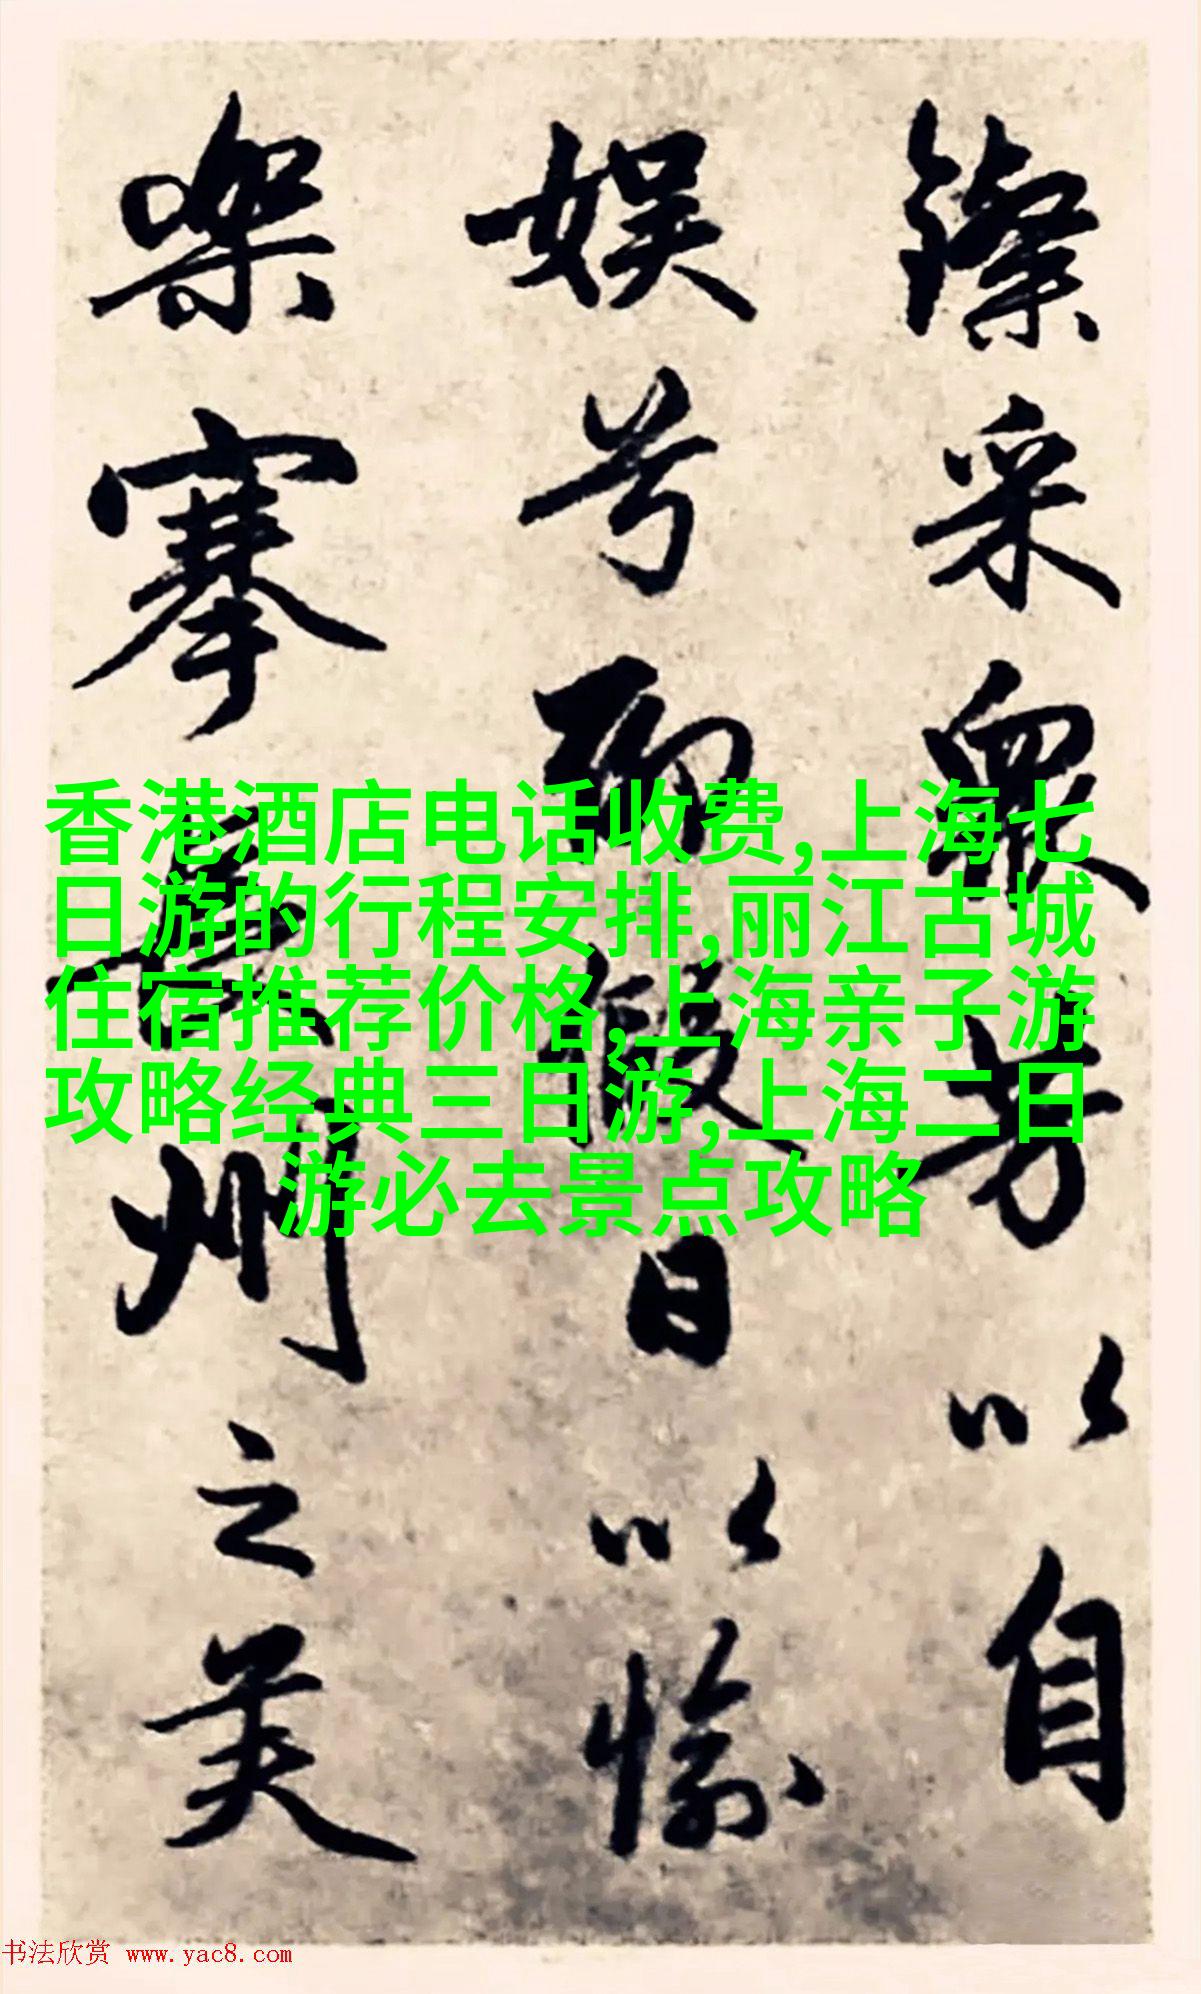 采眾芳以自
娱兮聊假日以愉
樂搴長州之芙
香港酒店电话收费,上海七
日游的行程安排,丽江古城
住宿推荐价格,上海亲子游
攻略经典三日游,上海二日
游必去景点攻略
书法欣赏 www.yac8.com